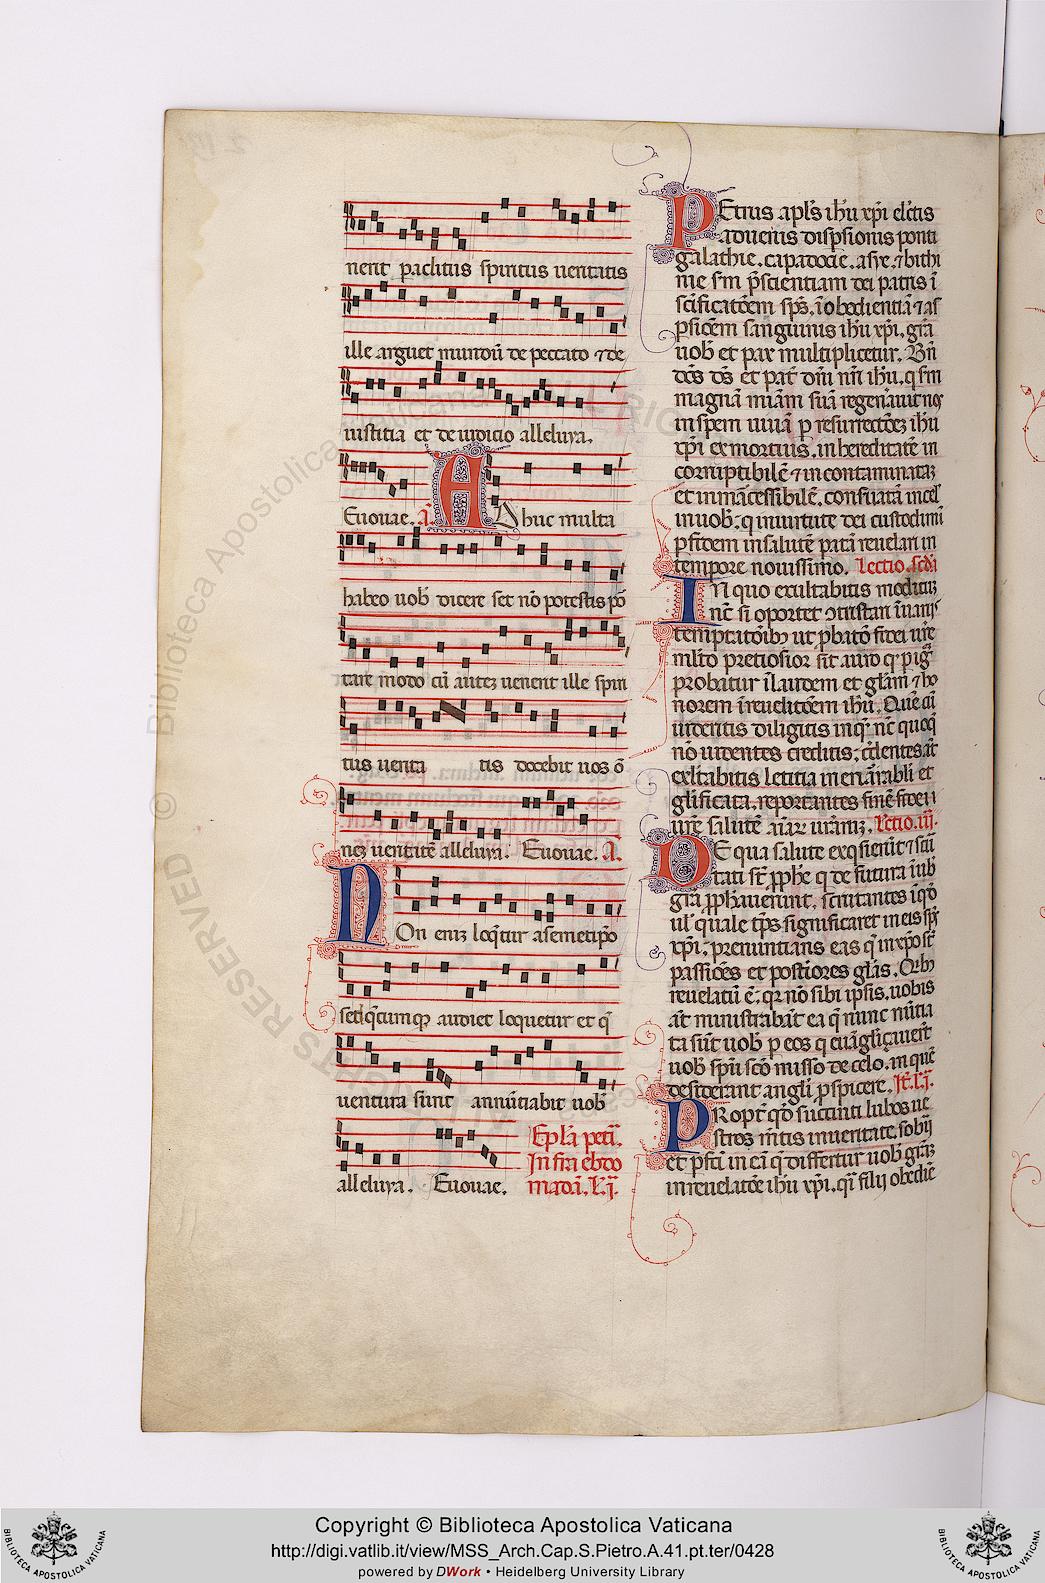 nerit paclitus spiritus ueritatis
ille arguet mundū de peccato ⁊ de
iustitia et de iudicio alleluya.
Euouae. A̅. Adhuc multa
habeo uob̅ dicere set nō potestis po
tare modo cū autez uenerit ille spiri
tus uerita tis docebit uos ō
nez ueritatē alleluya. Euouae. A̅.
Non eniz loq̅tur asemetip̅o
sed q̅cumq̨ audiet loquetur et q̅
uentura sunt annūtiabit uob̅
alleluya. Euouae.
Epl̅a petri.
Infra ebdo
madā. l̅. j̅.
Petrus apl̅s ih̅u xp̅i elc̅tis
aduenis dispsionis ponti
galathie. capadocie. asye. ⁊ bithi
nie s̅m p̅scientiam dei patris ī
sc̅ificatōem sp̅s. ī obedientiā ⁊ as
psiōem sanguinis ih̅u xp̅i. gr̅a
uob̅ et pax multiplicetur. Bn̅
dc̅s ds̅ et pat̅ dn̅i nr̅i ih̅u. q s̅m
magnā mi̅am suā regen̅auit nos
in spem uiuā p resurrectōez ih̅u
xp̅i ex mortuis. in hereditatē in
corruptibilē ⁊ incontaminataz
et inmarcessibilē. conseruatā in cel̅
in uob̅. q in uirtute dei custodimi
p fidem in salutē paratā reuelari in
tempore nouissimo. Lectio. scd̅a
In quo exultabitis modicuz
nc̅ si oportet ɔtristari ī uarijs
temptatōib̅ ut p̅batō fidei ur̅e
ml̅to pretiosior sit auro q p ig̅
probatur ī laudem et gl̅am ⁊ ho
norem ī reuelatōem ih̅u. Quē cū
uideritis diligitis in q̅ nc̅ quoq̅
nō uidentes creditis. c̅dentes at̅
exl̅tabitis letitia inenarrabli et
gl̅ificata. reportantes finē fidei
ur̅e salutē aīar uraruz. Lectio. iij̅.
De qua salute exq̅sierūt ⁊ scru
tati st̅ pp̅he q de futura ī uob̅
gr̅a pp̅hauerunt. scrutantes ī q̅d
ul̅ quale tp̅s significaret in eis sp̅s
xp̅i. prenuntians eas q̅ in xp̅o st̅
passiōes et postiores gl̅as. Qib̅
reuelatū ē. qr nō sibi ipsis. uobis
at̅ ministrabāt ea q̅ nunc nūtia
ta sūt uob̅ p eos q euāgliçauerūt
uob̅ spū scō misso de celo. in quē
desiderant angli pspicere. It̅. l̅. j̅.
Propt̅ qd̅ succincti lumbos ue
stros m̅tis inueritate. sobrij
et pfc̅i in eā q̅ differtur uob̅ gr̅az
in reuelatōe ih̅u xp̅i. q̅i filij obediē
© Biblioteca Apostolica Vaticana
RIGHTS RESERVED
BIBLIOTECA APOSTOLICA VATICANA
Copyright © Biblioteca Apostolica Vaticana
http://digi.vatlib.it/view/MSS_Arch.Cap.S.Pietro.A.41.pt.ter/0428
powered by DWork • Heidelberg University Library
BIBLIOTECA APOSTOLICA VATICANA